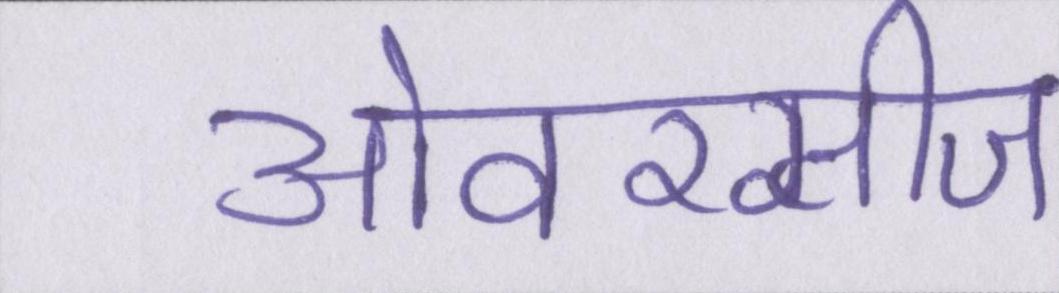 ओवरसीज